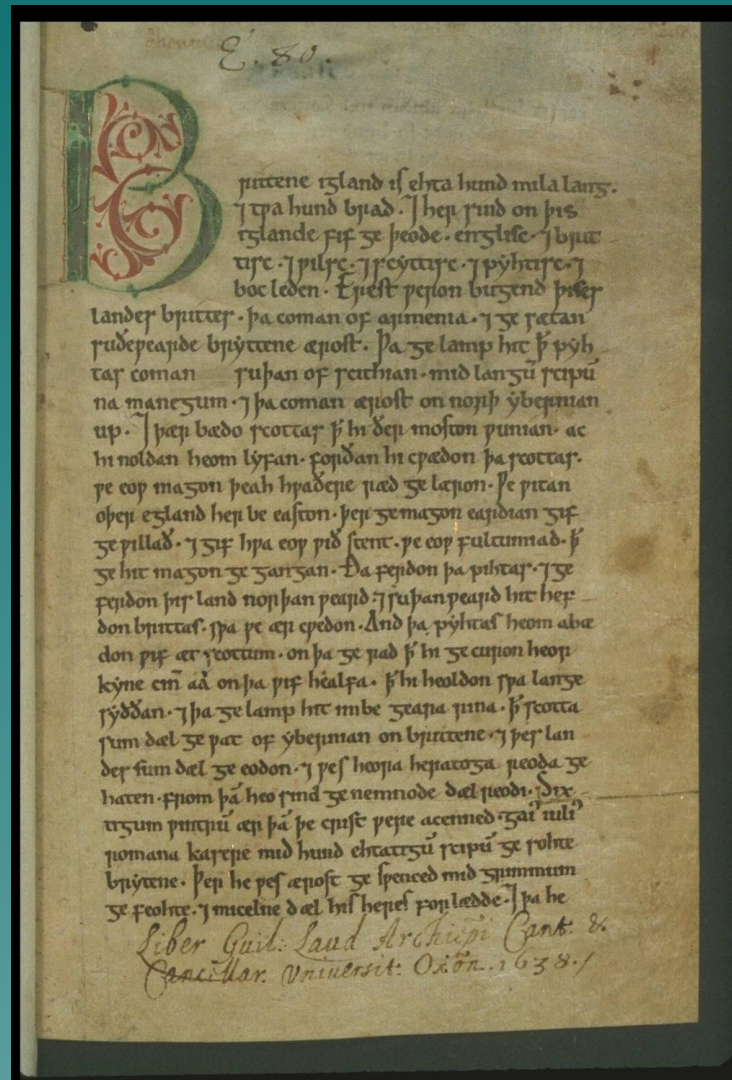 E. 80.
Brittene igland is ehta hund mila lang.
⁊ tƿa hund brad. ⁊ her sind on þis
iglande fif ge þeode. englisc. ⁊ brit
tisc. ⁊ ƿilsc. ⁊ scyttisc. ⁊ pyhtisc. ⁊
boc leden. Erest ƿeron bugend þises
landes brittes. þa coman of armenia. ⁊ ge sætan
suðeƿearde bryttene ærost. Þa ge lamp hit ꝥ pyh
tas coman suþan of scithian. mid langū scipū
na manegum. ⁊ þa coman ærost on norþ ybernian
up. ⁊ þær bædo scottas ꝥ hi ðer moston ƿunian. ac
hi noldan heom lyfan. forðan hi cƿædon þa scottas.
ƿe eoƿ magon þeah hƿaðere ræd ge læron. Ƿe ƿitan
oþer egland her be easton. þer ge magon eardian gif
ge ƿillað. ⁊ gif hƿa eoƿ ƿið stent. ƿe eoƿ fultumiað. ꝥ
ge hit magon ge gangan. Ða ferdon þa pihtas. ⁊ ge
ferdon þis land norþan ƿeard. ⁊ suþan ƿeard hit hef
don brittas. sƿa ƿe ær cƿedon. And þa pyhtas heom abæ
don ƿif æt scottum. on þa ge rad ꝥ hi ge curon heor
kyne cin̄ aá on þa ƿif healfa. ꝥ hi heoldon sƿa lange
syððan. ⁊ þa ge lamp hit imbe geara rina. ꝥ scotta
sum dæl ge ƿat of ybernian on brittene. ⁊ þes lan
des sum dæl ge eodon. ⁊ ƿes heora heratoga reoda ge
haten. from þā heo sind ge nemnode dæl reodi. Six
tigum ƿintrū ær þā þe crist ƿere acenned. gai' iuli'
romana kasere mid hund ehtatigū scipū ge sohte
brytene. Þer he ƿes ærost ge sƿenced mid grimmum
ge feohte. ⁊ micelne dæl his heres forlædde. ⁊ þa he
Liber Guil: Laud Archiep̄i Cant: &
Cancellar. Vniuersit: Oxōn. 1638.